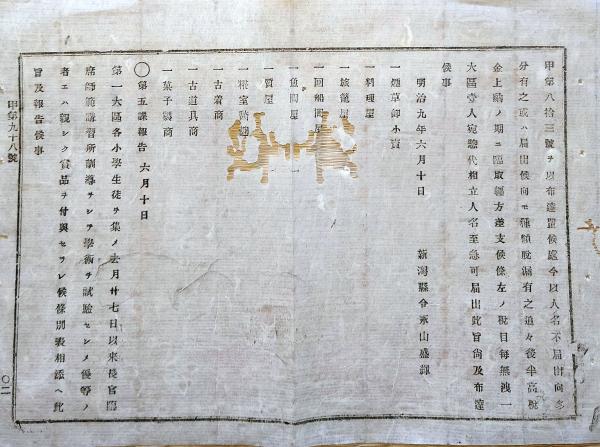 甲第八拾三號ヲ以布達置候處今以人名不届出向多
分有之或ハ届出候向モ種類脱漏有之追々後半高税
金上納ノ期ニ臨取纒方差支候條左ノ税目毎無洩一
大區壹人宛惣代相立人名至急可届出此旨尚及布達
候事
新潟縣令永山盛輝
明治九年六月十日
一煙草卸小賣
一料理屋
一旅籠屋
一回船問屋
一魚問屋
一質屋
一糀室
一古着商
一古道具商
一菓子 商
〇第五課報告 六月十日
第一大區各小學生徒ヲ集メ去月廿七日以來長官臨
席師範講習所訓導ヲシテ學術ヲ試驗セシメ優等ノ
者エハ親シク賞品ヲ付與セラレ候條別表相添ヘ此
旨及報告候事
甲第九十八號
〇二